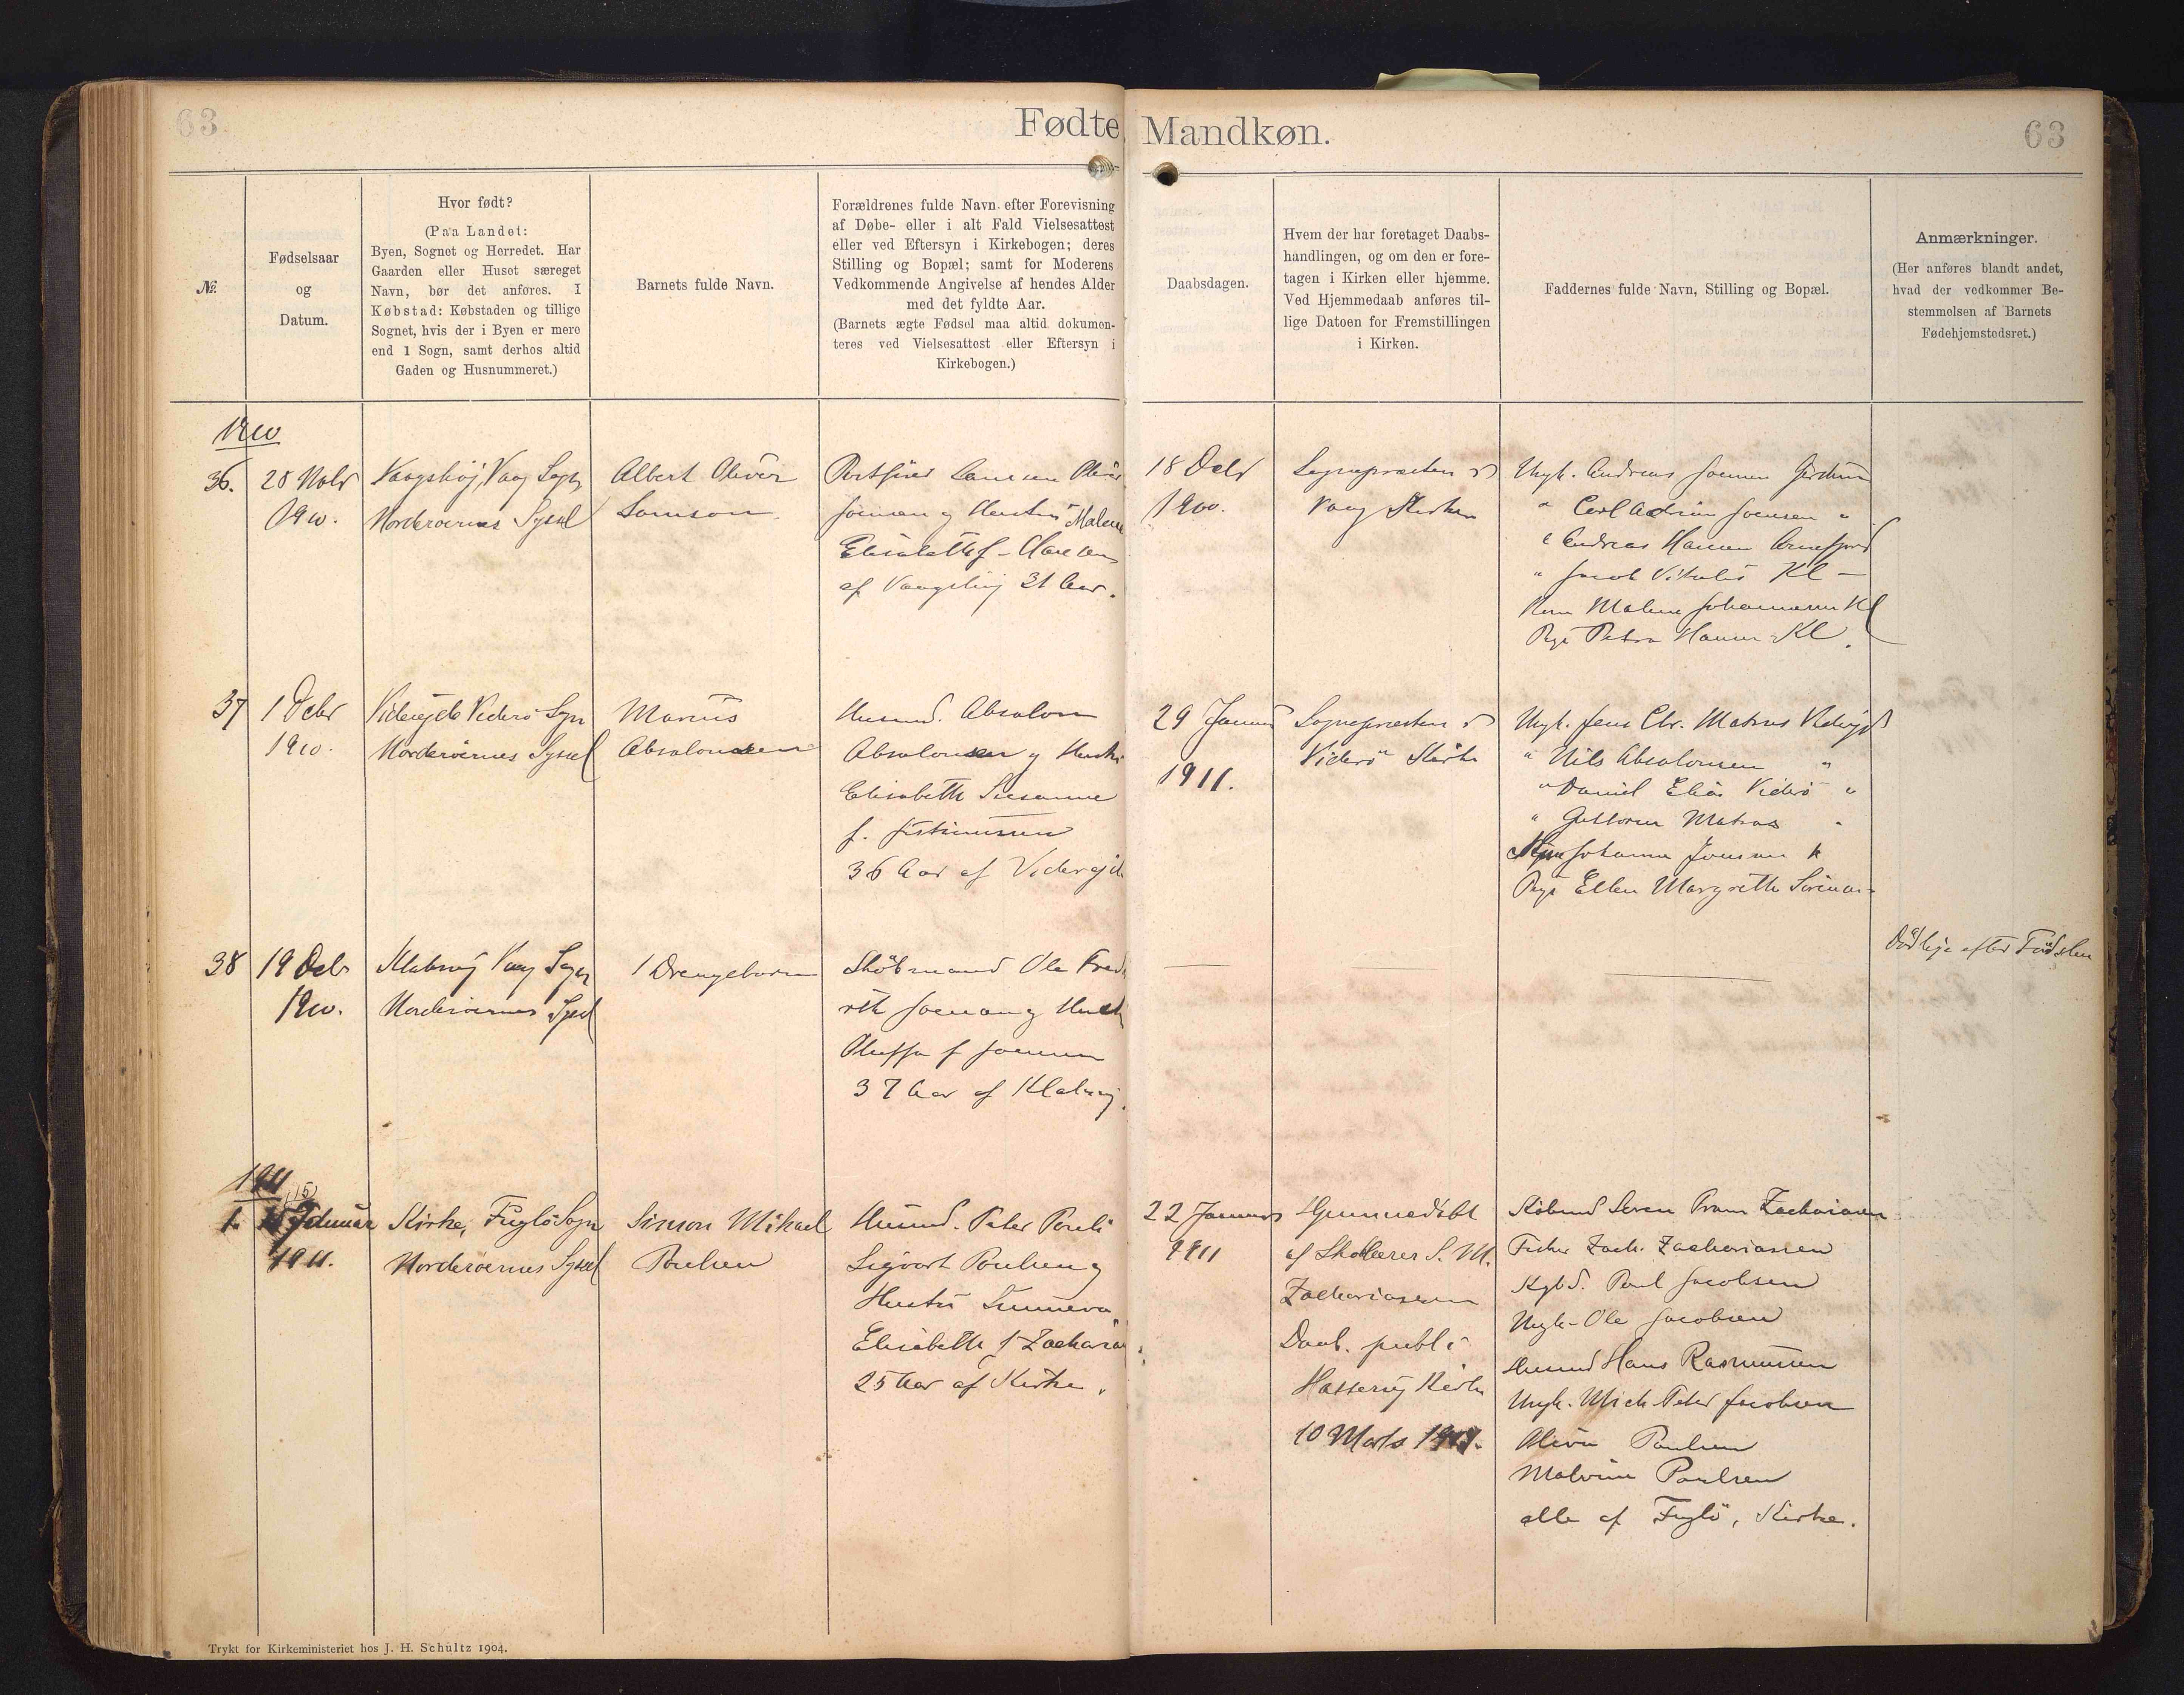 63
Fødte Mandkøn.
63
№.
Fødselsaar
og
Datum.
Hvor født?
(Paa Landet:
Byen, Sognet og Herredet. Har
Gaarden eller Huset særeget
Navn, bør det anføres. I
Købstad: Købstaden og tillige
Sognet, hvis der i Byen er mere
end 1 Sogn, samt derhos altid
Gaden og Husnummeret.)
Barnets fulde Navn.
Forældrenes fulde Navn efter Forevisning
af Døbe- eller i alt Fald Vielsesattest
eller ved Eftersyn i Kirkebogen; deres
Stilling og Bopæl; samt for Moderens
Vedkommende Angivelse af hendes Alder
med det fyldte Aar.
(Barnets ægte Fødsel maa altid dokumen-
teres ved Vielsesattest eller Eftersyn i
Kirkebogen.)
Daabsdagen.
Hvem der har foretaget Daabs-
handlingen, og om den er fore-
tagen i Kirken eller hjemme.
Ved Hjemmedaab anføres til-
lige Datoen for Fremstillingen
i Kirken.
Faddernes fulde Navn, Stilling og Bopæl.
Anmærkninger.
(Her anføres blandt andet,
hvad der vedkommer Be-
stemmelsen af Barnets
Fødehjemstedsret.)
1910
36.
28 Nobr
1910.
Vaagsbøj, Vaag Sogn
Norderøernes Syssel
Albert Oliver
Samson
Joensen og Hustru Malene
Elisabeth f.
af Vaagsbøj 31 Aar.
18 Debr
1900.
Sognepræsten i
Vaag Kirke
Ungk. Andreas Joensen
" Carl Joensen "
" Andreas Hansen
" Jacob Vitalis Kl –
Malene Johannesen Kl
Pige Petra Hansen Kl.
37
1 Debr
1910.
Viderejde Viderø Sogn
Norderøernes Syssel
Marius
Absalonsen
Husmd. Absalon
Absalonsen og Hustru
Elisabeth Susanne
f. Justinussen
36 Aar af Viderejde
29 Januar
1911.
Sognepræsten i
Viderø Kirke
Ungk. Jens Chr. Matras Viderejde
" Nils Absalonsen "
" Daniel Elias Viderø "
" Guttorm Matras "
Johanna Joensen
Pige Ellen Margrethe
38
19 Debr
1910.
Klaksvig Vaag Sogn
Norderøernes Syssel
1 Drengebarn
Købmand Ole Fred-
rik Joensen og Hustru
Oluffa f. Joensen
37 Aar af Klaksvig.
Død lige efter Fødselen
1911
(15)
1.
15 Januar
1911.
Kirke, Fuglø Sogn
Norderøernes Syssel
Simon Mikael
Poulsen
Husmd. Peter Pouli
Sigvart Poulsen og
Hustru Sunneva
Elisabeth f Zacharias
25 Aar af Kirke.
22 Januar
1911
Hjemmedøbt
af Skolelærer S. M.
Zachariasen
Daab. publ i
Hattervig Kirke
10 Marts 1911.
Købmd Søren Zachariasen
Fisker Zach. Zachariassen
Kgbd. Poul Jacobsen
Ungk. Ole Jacobsen
Husmd Hans Rasmussen
Ungk. Mich Peter Jacobsen
Olevine Poulsen
Malvine Poulsen
alle af Fuglø, Kirke.
Trykt for Kirkeministeriet hos J. H. Schultz 1904.